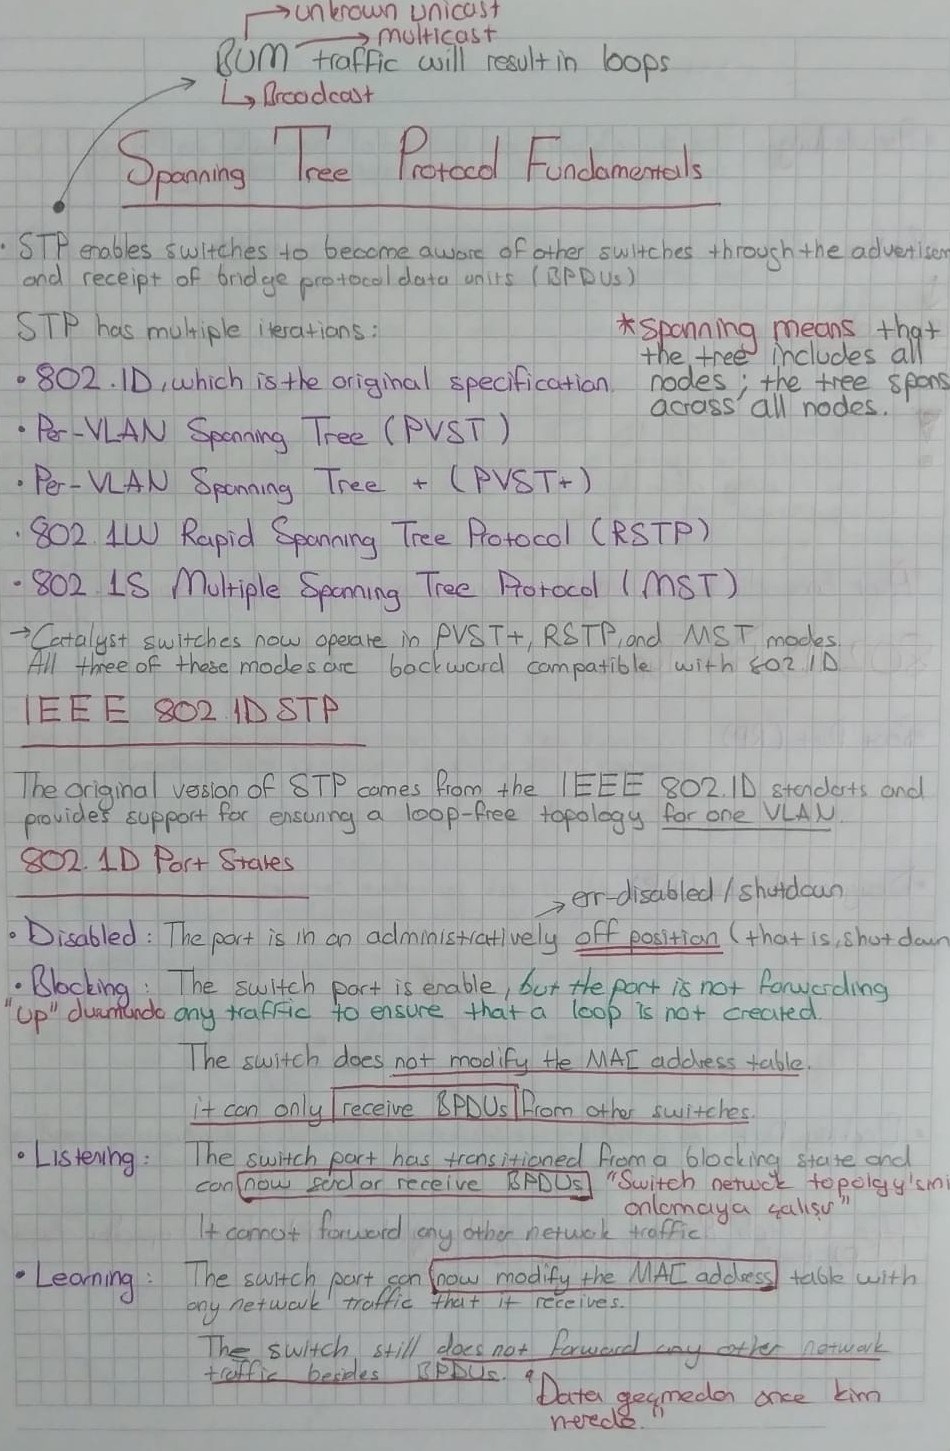 →unknown unicast
→multicast
BUM traffic will result in loops
↳ Broadcast
Spanning Tree Protocol Fundamentals
• STP enables switches to become aware of other switches through the advertisem
and receipt of bridge protocol data units (BPDUs)
STP has multiple iterations:
*Spanning means that
the tree includes all
nodes; the tree spans
across all nodes.
• 802.1D, which is the original specification
• Per-VLAN Spanning Tree (PVST)
• Per-VLAN Spanning Tree + (PVST+)
• 802.1W Rapid Spanning Tree Protocol (RSTP)
• 802.1S Multiple Spanning Tree Protocol (MST)
→Catalyst switches now operate in PVST+, RSTP, and MST modes.
All three of these modes are backward compatible with 802.1D
IEEE 802.1D STP
The original vesion of STP comes from the IEEE 802.1D standarts and
provides support for ensuring a loop-free topology for one VLAN.
802.1D Port States
→ err-disabled / shutdown
• Disabled: The port is in an administratively off position (that is, shut down
• Blocking: The switch port is enable, but the port is not forwarding
"up" durumunda any traffic to ensure that a loop is not created.
The switch does not modify the MAC address table.
it can only receive BPDUs from other switches.
• Listening: The switch port has transitioned from a blocking state and
can now send or receive BPDUs "Switch network topolgy'sini
anlamaya çalışır"
It cannot forward any other network traffic.
• Learning: The switch port can now modify the MAC address table with
any network traffic that it receives.
The switch still does not forward any other network
traffic besides BPDUs.
"Data geçmeden önce kim
nerede."